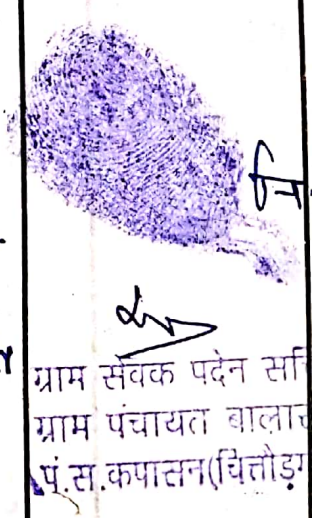 नि
ग्राम सेवक पदेन सचि
ग्राम पंचायत बाला
पं.स.कपासन(चित्तौड़ग